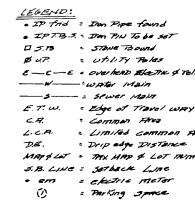 LEGEND:
• IP fnd = Iron Pipe found
• IP T.B.S. = Iron Pin To be Set
□ S.B = Stone Bound
Ø U.P. = Utility Poles
E — E — E = overhead Electric & Tel
— W — = water Main
— S — = Sewer Main
E. T. W. = Edge of Travel Way
C.A. = Common Area
L.C.A. = Limited Common A
D.E. = Drip edge Distance
MAP & LOT = TAX MAP & LOT num
S.B. LINE = Setback Line
• em = electric meter
= Parking Space